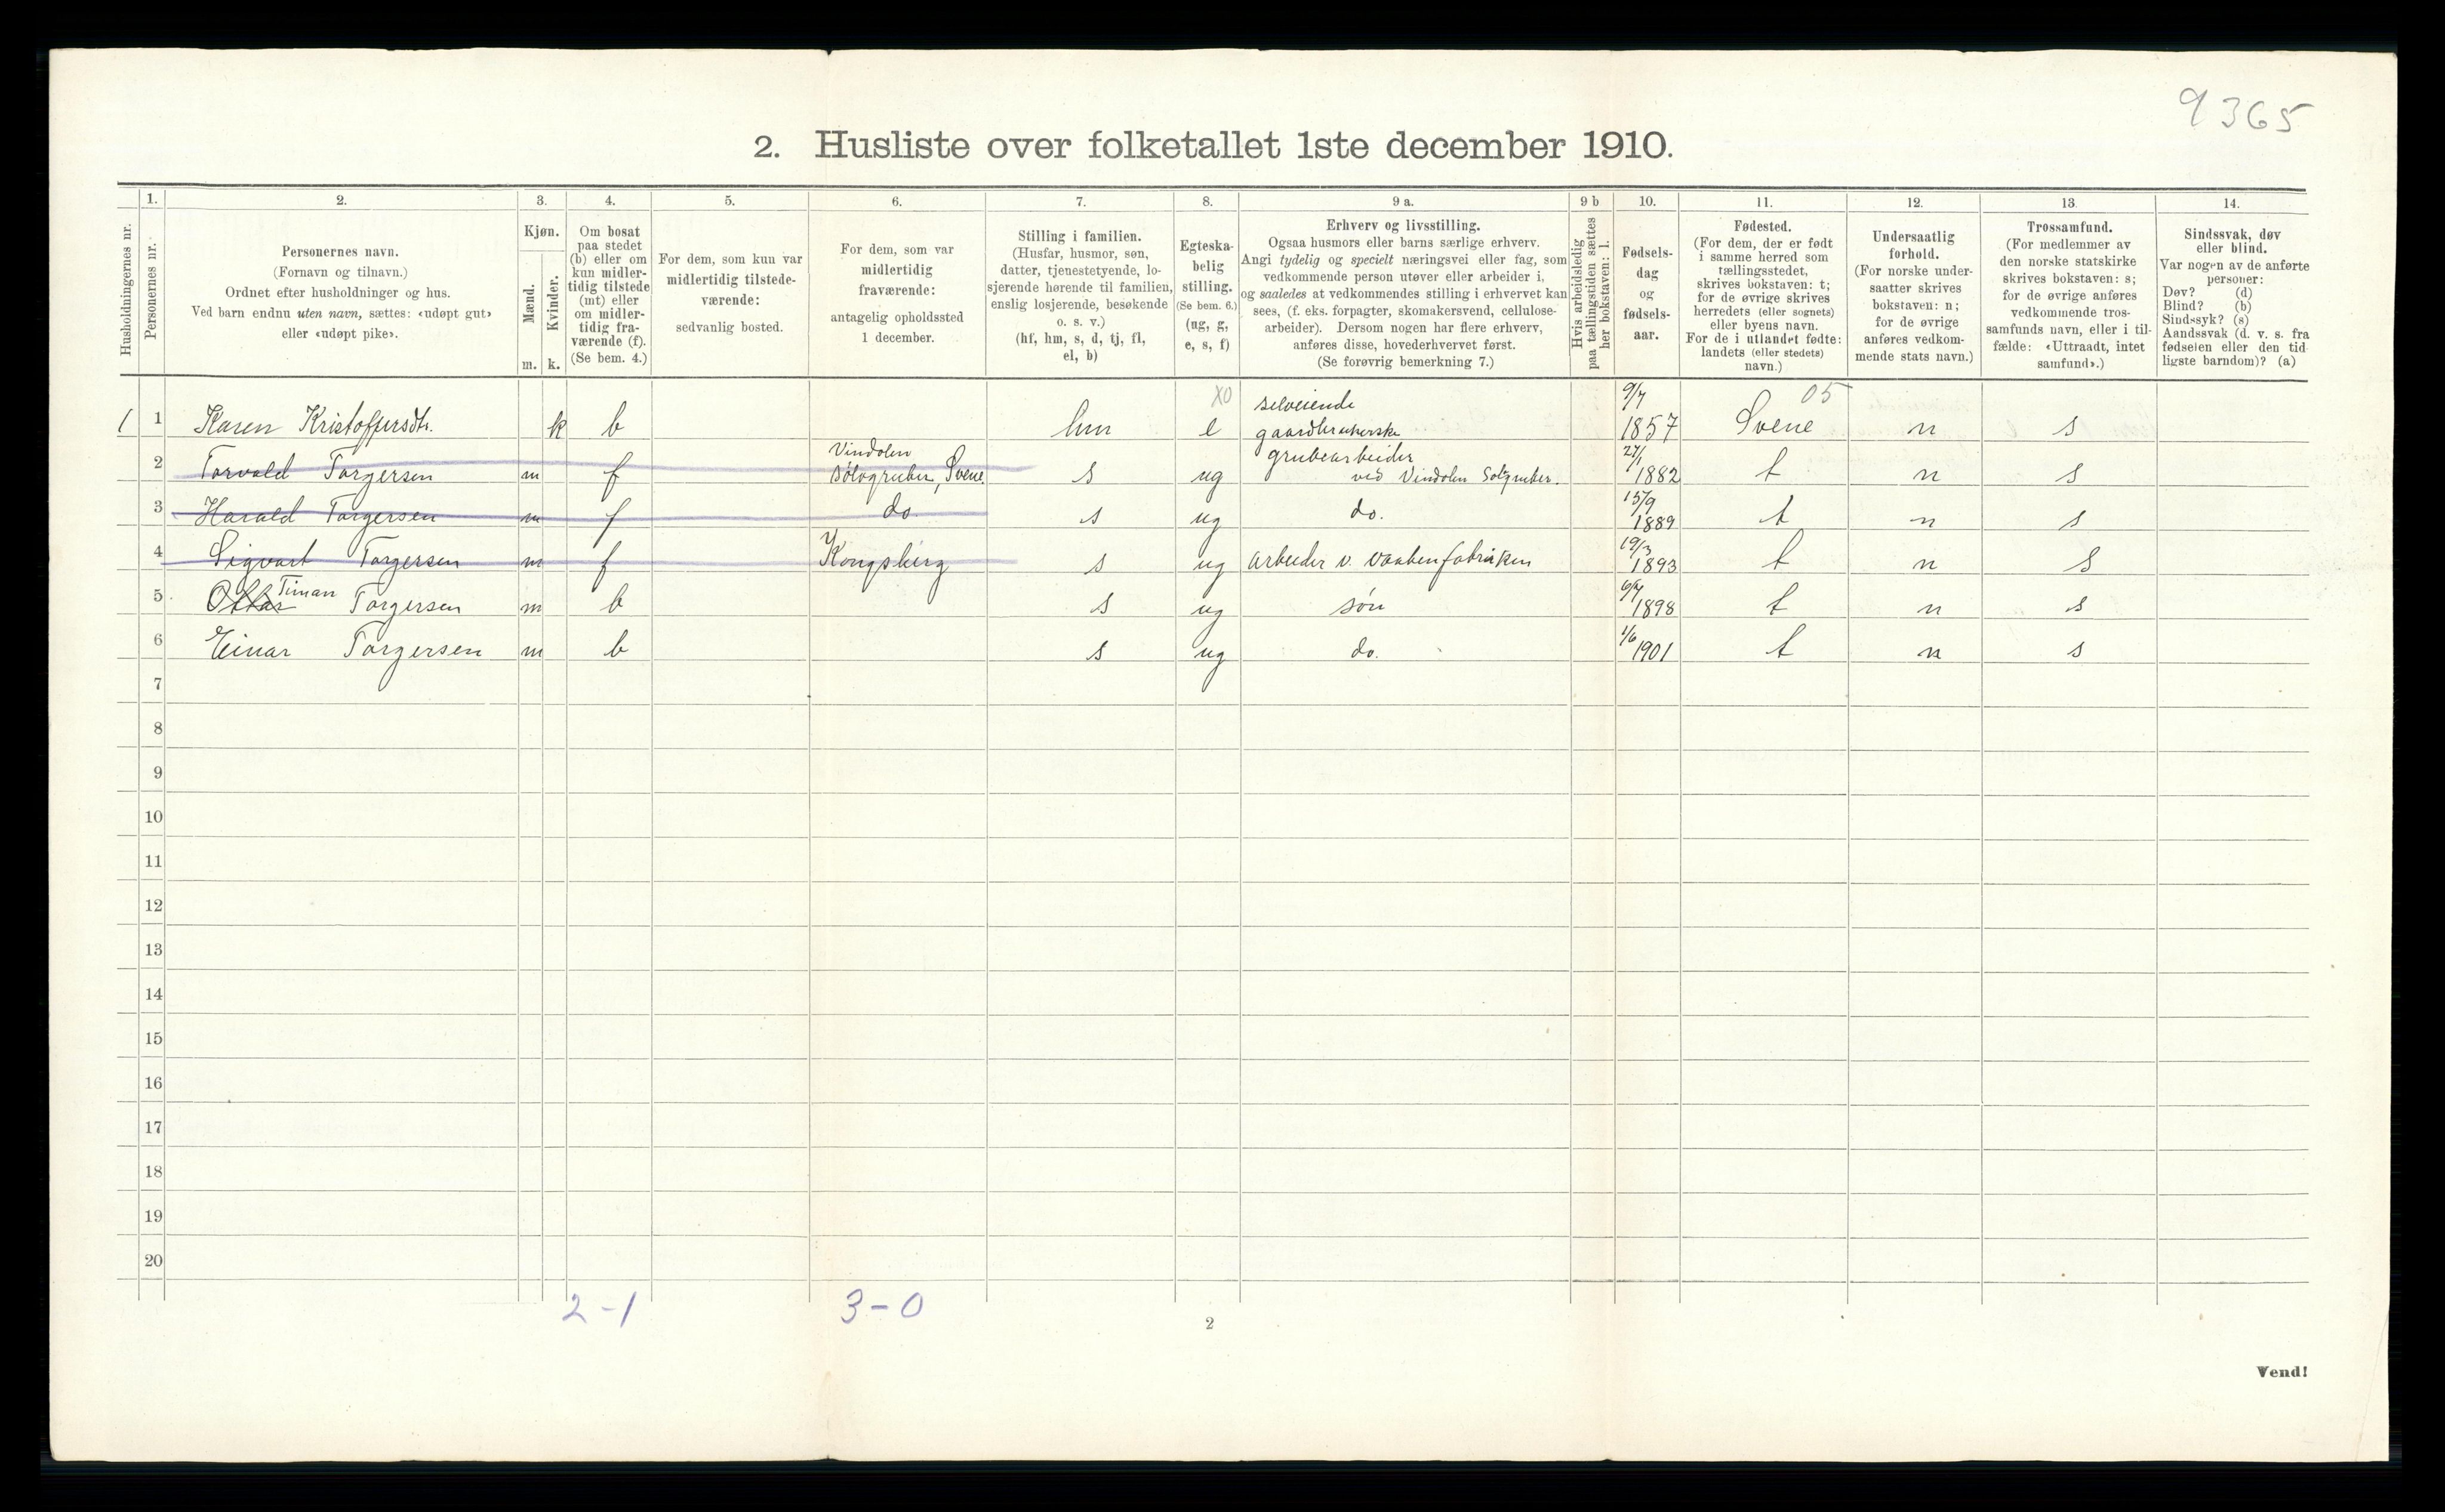 9365
2. Husliste over folketallet 1ste december 1910.
Husholdningernes nr.
1.
Personernes nr.
2.
Personernes navn.
(Fornavn og tilnavn.)
Ordnet efter husholdninger og hus.
Ved barn endnu uten navn, sættes: «udøpt gut»
eller «udøpt pike».
3.
Kjøn.
Mænd.
m.
Kvinder.
k.
4.
Om bosat
paa stedet
(b) eller om
kun midler-
tidig tilstede
(mt) eller
om midler-
tidig fra-
værende (f).
(Se bem. 4.)
5.
For dem, som kun var
midlertidig tilstede-
værende:
sedvanlig bosted.
6.
For dem, som var
midlertidig
fraværende:
antagelig opholdssted
1 december.
7.
Stilling i familien.
(Husfar, husmor, søn,
datter, tjenestetyende, lo-
sjerende hørende til familien,
enslig losjerende, besøkende
o. s. v.)
(hf, hm, s, d, tj, fl,
el, b)
8.
Egteska-
belig
stilling.
(Se bem. 6.)
(ug, g,
e, s, f)
9 a.
Erhverv og livsstilling.
Ogsaa husmors eller barns særlige erhverv.
Angi tydelig og specielt næringsvei eller fag, som
vedkommende person utøver eller arbeider i,
og saaledes at vedkommendes stilling i erhvervet kan
sees, (f. eks. forpagter, skomakersvend, cellulose-
arbeider). Dersom nogen har flere erhverv,
anføres disse, hovederhvervet først.
(Se forøvrig bemerkning 7.)
9 b
Hvis arbeidsledig
paa tællingstiden sættes
her bokstaven: l.
10.
Fødsels-
dag
og
fødsels-
aar.
11.
Fødested.
(For dem, der er født
i samme herred som
tællingsstedet,
skrives bokstaven: t;
for de øvrige skrives
herredets (eller sognets)
eller byens navn.
For de i utlandet fødte:
landets (eller stedets)
navn.)
12.
Undersaatlig
forhold.
(For norske under-
saatter skrives
bokstaven: n;
for de øvrige
anføres vedkom-
mende stats navn.)
13.
Trossamfund.
(For medlemmer av
den norske statskirke
skrives bokstaven: s;
for de øvrige anføres
vedkommende tros-
samfunds navn, eller i til-
fælde: «Uttraadt, intet
samfund».)
14.
Sindssvak, døv
eller blind.
Var nogen av de anførte
personer:
Døv? (d)
Blind? (b)
Sindssyk? (s)
Aandssvak (d. v. s. fra
fødselen eller den tid
ligste barndom)? (a)
X0 selveiende 9/7 05
1 1 Karen Kristoffersdtr. k b hm e gaardbrukerske 1857 Svene n s
Vindolen grubearbeider 27/1
2 Torvald Torgersen m f Sølvgruber, Svene. s ug ved Vindolen Sølgruber. 1882 t n s
15/9
3 Harald Torgersen m f do. s ug do. 1889 t n s
19/3
4 Sigvart Torgersen m f Kongsberg s ug arbeider v. vaabenfabrikken 1893 t n s
Timan
5 Ottar Torgersen m b s ug søn 1898 t n s
1/6
6 Einar Torgersen m b s ug do. 1901 t n s
7
8
9
10
11
12
13
14
15
16
17
18
19
20
2-1 3-0
2
Vend!